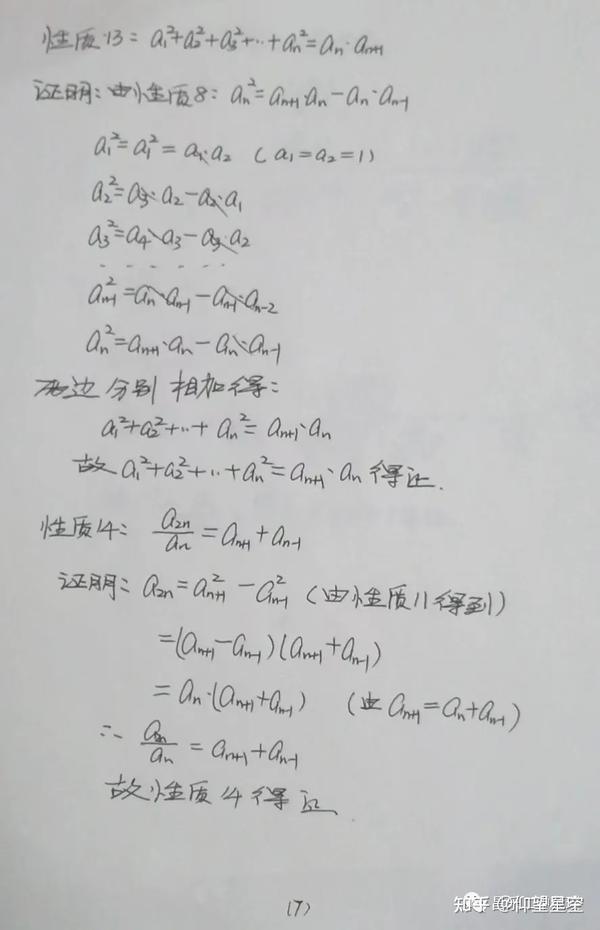 性质13: a₁²+a₂²+a₃²+…+aₙ²=aₙ·aₙ₊₁
证明: 由性质8: aₙ²=aₙ₊₁·aₙ-aₙ·aₙ₋₁
a₁²=a₁²=a₁·a₂ (a₁=a₂=1)
a₂²=a₃·a₂-a₂·a₁
a₃²=a₄·a₃-a₃·a₂
- - - - - -
aₙ₋₁²=aₙ·aₙ₋₁-aₙ₋₁·aₙ₋₂
aₙ²=aₙ₊₁·aₙ-aₙ·aₙ₋₁
两边分别相加得:
a₁²+a₂²+…+aₙ²=aₙ₊₁·aₙ
故a₁²+a₂²+…+aₙ²=aₙ₊₁·aₙ得证.
性质14: a₂ₙ/aₙ=aₙ₊₁+aₙ₋₁
证明: a₂ₙ=aₙ₊₁²-aₙ₋₁² (由性质11得到)
=(aₙ₊₁-aₙ₋₁)(aₙ₊₁+aₙ₋₁)
=aₙ·(aₙ₊₁+aₙ₋₁) (由aₙ₊₁=aₙ+aₙ₋₁)
∴ a₂ₙ/aₙ=aₙ₊₁+aₙ₋₁
故性质14得证.
(7)
知乎 @仰望星空